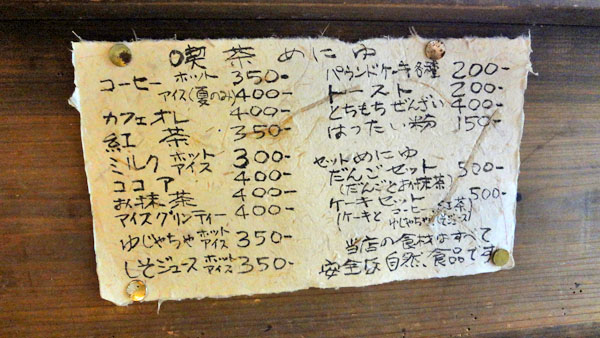 喫茶めにゆ
コーヒー ホット 350-
アイス(夏のみ) 400-
カフェオレ 400-
紅茶 350-
ミルク ホット アイス 300-
ココア 400-
お抹茶 400-
アイスグリンティー
ゆじゃちゃ ホット アイス 350-
しそジュース ホット アイス 350-
パウンドケーキ各種 200-
トースト 200-
とちもちぜんざい 400-
はったい粉 150-
セットめにゆ
だんごセット 500-
(だんごとお抹茶)
ケーキセット 500-
(ケーキとコーヒー(紅茶)
ゆじゃちゃ(しそジュース)
当店の食材はすべて
安全な自然食品です